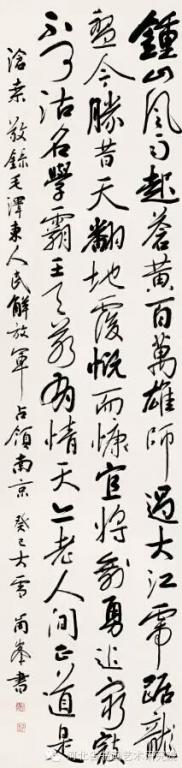 鍾山風雨起蒼黃百萬雄師過大江虎踞龍
盤今勝昔天翻地覆慨而慷宜將剩勇追窮寇
不可沽名學霸王天若有情天亦老人間正道是
滄桑 敬錄毛澤東人民解放軍占領南京 癸巳大雪 峯書